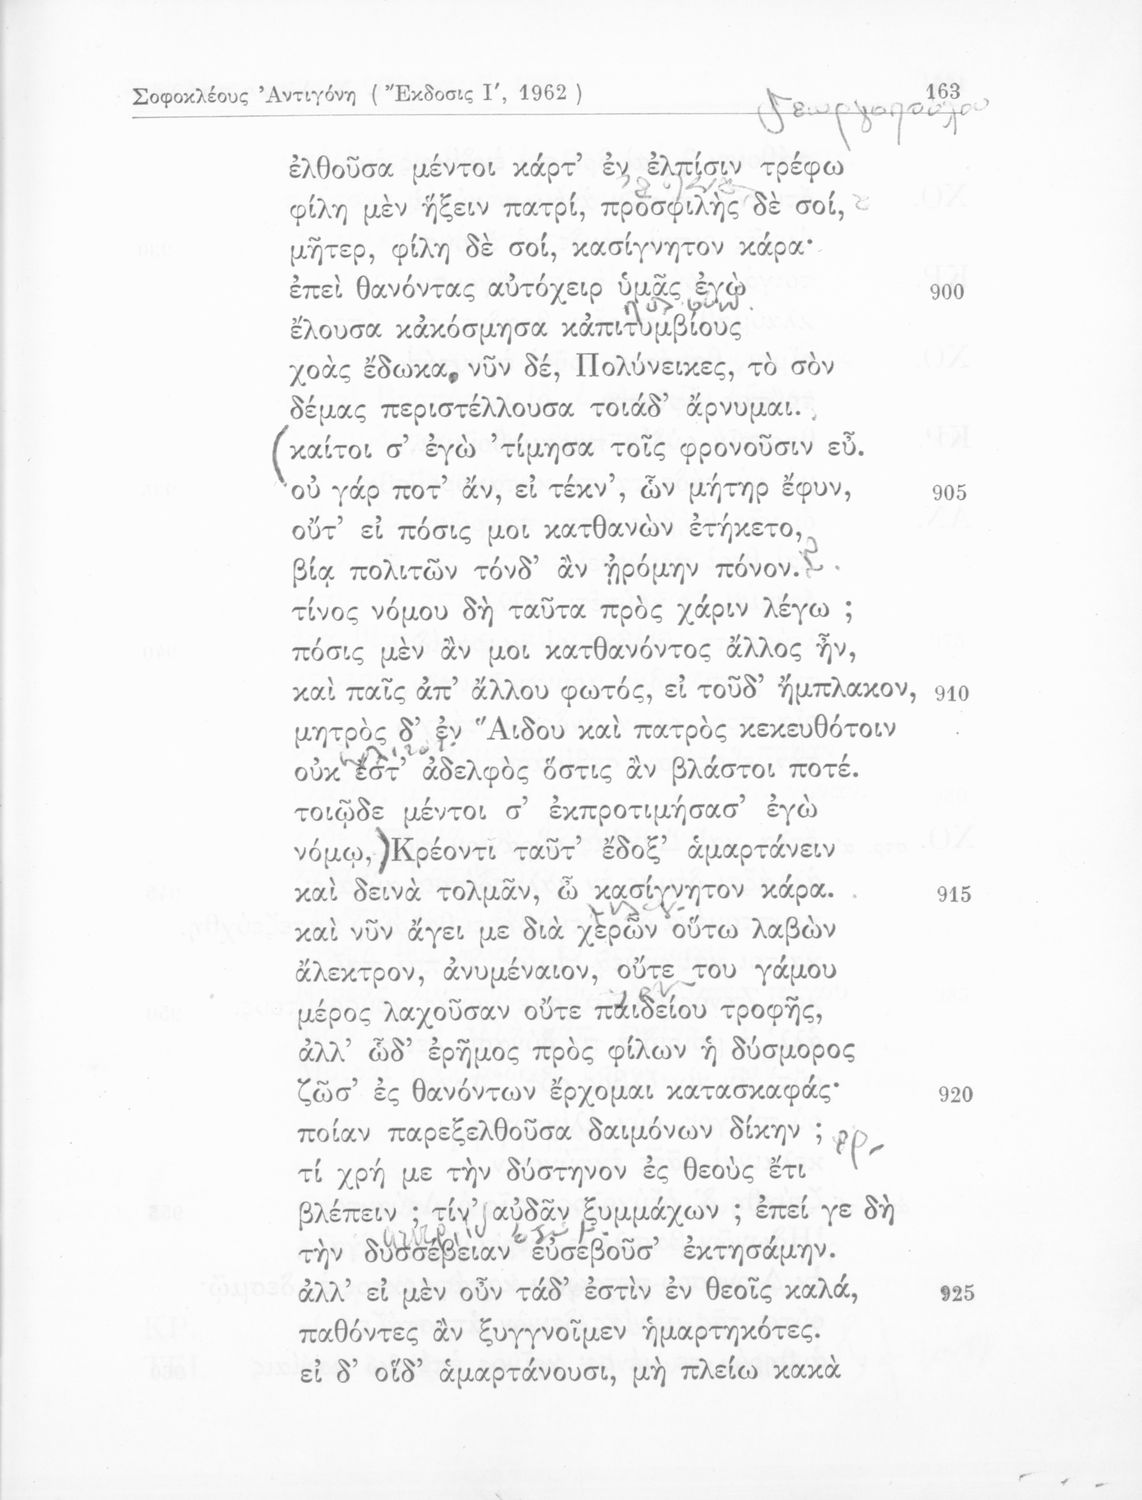 Σοφοκλέους Ἀντιγόνη ( Ἔκδοσις Ι′, 1962 ) 163
Γεωργοπούλου
ἐλθοῦσα μέντοι κάρτ’ ἐν ἐλπίσιν τρέφω
φίλη μὲν ἥξειν πατρί, προσφιλὴς δὲ σοί,
μῆτερ, φίλη δὲ σοί, κασίγνητον κάρα·
ἐπεὶ θανόντας αὐτόχειρ ὑμᾶς ἐγὼ 900
ἔλουσα κἀκόσμησα κἀπιτυμβίους
χοὰς ἔδωκα, νῦν δέ, Πολύνεικες, τὸ σὸν
δέμας περιστέλλουσα τοιάδ’ ἄρνυμαι.
(καίτοι σ’ ἐγὼ ’τίμησα τοῖς φρονοῦσιν εὖ.
οὐ γάρ ποτ’ ἄν, εἰ τέκν’, ὧν μήτηρ ἔφυν, 905
οὔτ’ εἰ πόσις μοι κατθανὼν ἐτήκετο,
βίᾳ πολιτῶν τόνδ’ ἂν ᾐρόμην πόνον.
τίνος νόμου δὴ ταῦτα πρὸς χάριν λέγω ;
πόσις μὲν ἂν μοι κατθανόντος ἄλλος ἦν,
καὶ παῖς ἀπ’ ἄλλου φωτός, εἰ τοῦδ’ ἤμπλακον, 910
μητρὸς δ’ ἐν Ἅιδου καὶ πατρὸς κεκευθότοιν
οὐκ ἔστ’ ἀδελφὸς ὅστις ἂν βλάστοι ποτέ.
τοιῷδε μέντοι σ’ ἐκπροτιμήσασ’ ἐγὼ
νόμῳ,)Κρέοντι ταῦτ’ ἔδοξ’ ἁμαρτάνειν
καὶ δεινὰ τολμᾶν, ὦ κασίγνητον κάρα. 915
καὶ νῦν ἄγει με διὰ χερῶν οὕτω λαβὼν
ἄλεκτρον, ἀνυμέναιον, οὔτε του γάμου
μέρος λαχοῦσαν οὔτε παιδείου τροφῆς,
ἀλλ’ ὧδ’ ἐρῆμος πρὸς φίλων ἡ δύσμορος
ζῶσ’ ἐς θανόντων ἔρχομαι κατασκαφάς· 920
ποίαν παρεξελθοῦσα δαιμόνων δίκην ;
τί χρή με τὴν δύστηνον ἐς θεοὺς ἔτι
βλέπειν ; τίν’ αὐδᾶν ξυμμάχων ; ἐπεί γε δὴ
τὴν δυσσέβειαν εὐσεβοῦσ’ ἐκτησάμην.
ἀλλ’ εἰ μὲν οὖν τάδ’ ἐστὶν ἐν θεοῖς καλά, 925
παθόντες ἂν ξυγγνοῖμεν ἡμαρτηκότες.
εἰ δ’ οἵδ’ ἁμαρτάνουσι, μὴ πλείω κακὰ